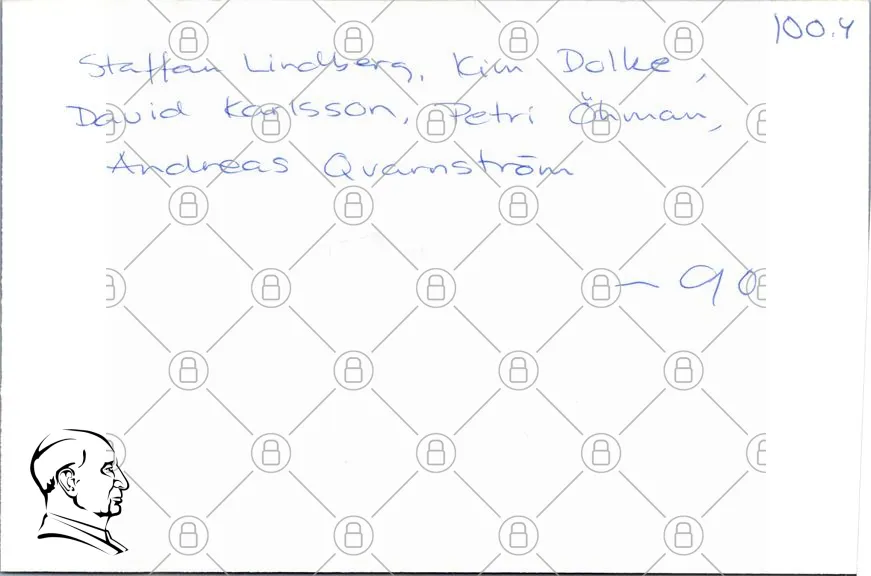 100.4
Staffan Lindberg, Kim Dolke,
David Karlsson, Petri Öhman,
Andreas Qvarnström
~ 90